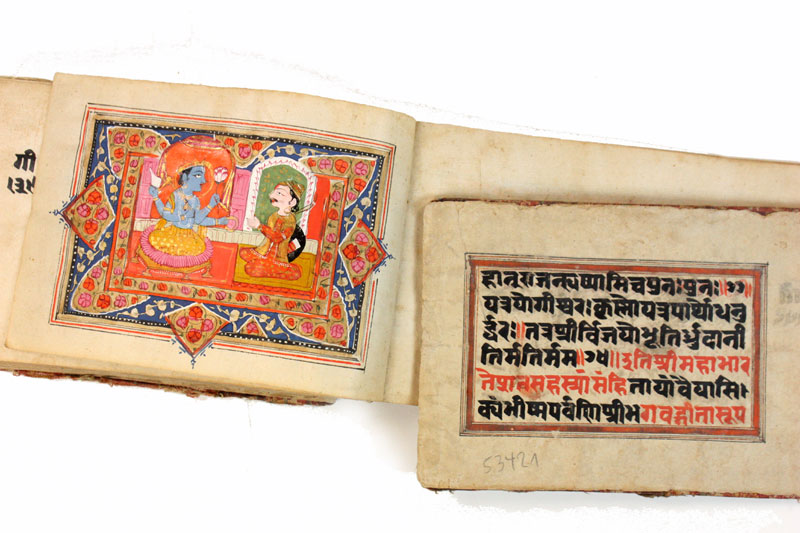 गी
हान्राजन्हृष्यामिचपुनःपुनः॥७७॥
यत्रयोगीश्वरःकृष्णोयत्रपार्थोधनु
र्द्धरः॥तत्रश्रीर्विजयोभूतिर्ध्रुवानी
तिर्मतिर्मम॥७८॥इतिश्रीमहाभार
तेशतसहस्र्यांसंहितायांवैयासि।
क्यंभीष्मपर्वणिश्रीभगवद्गीतासूप
53421